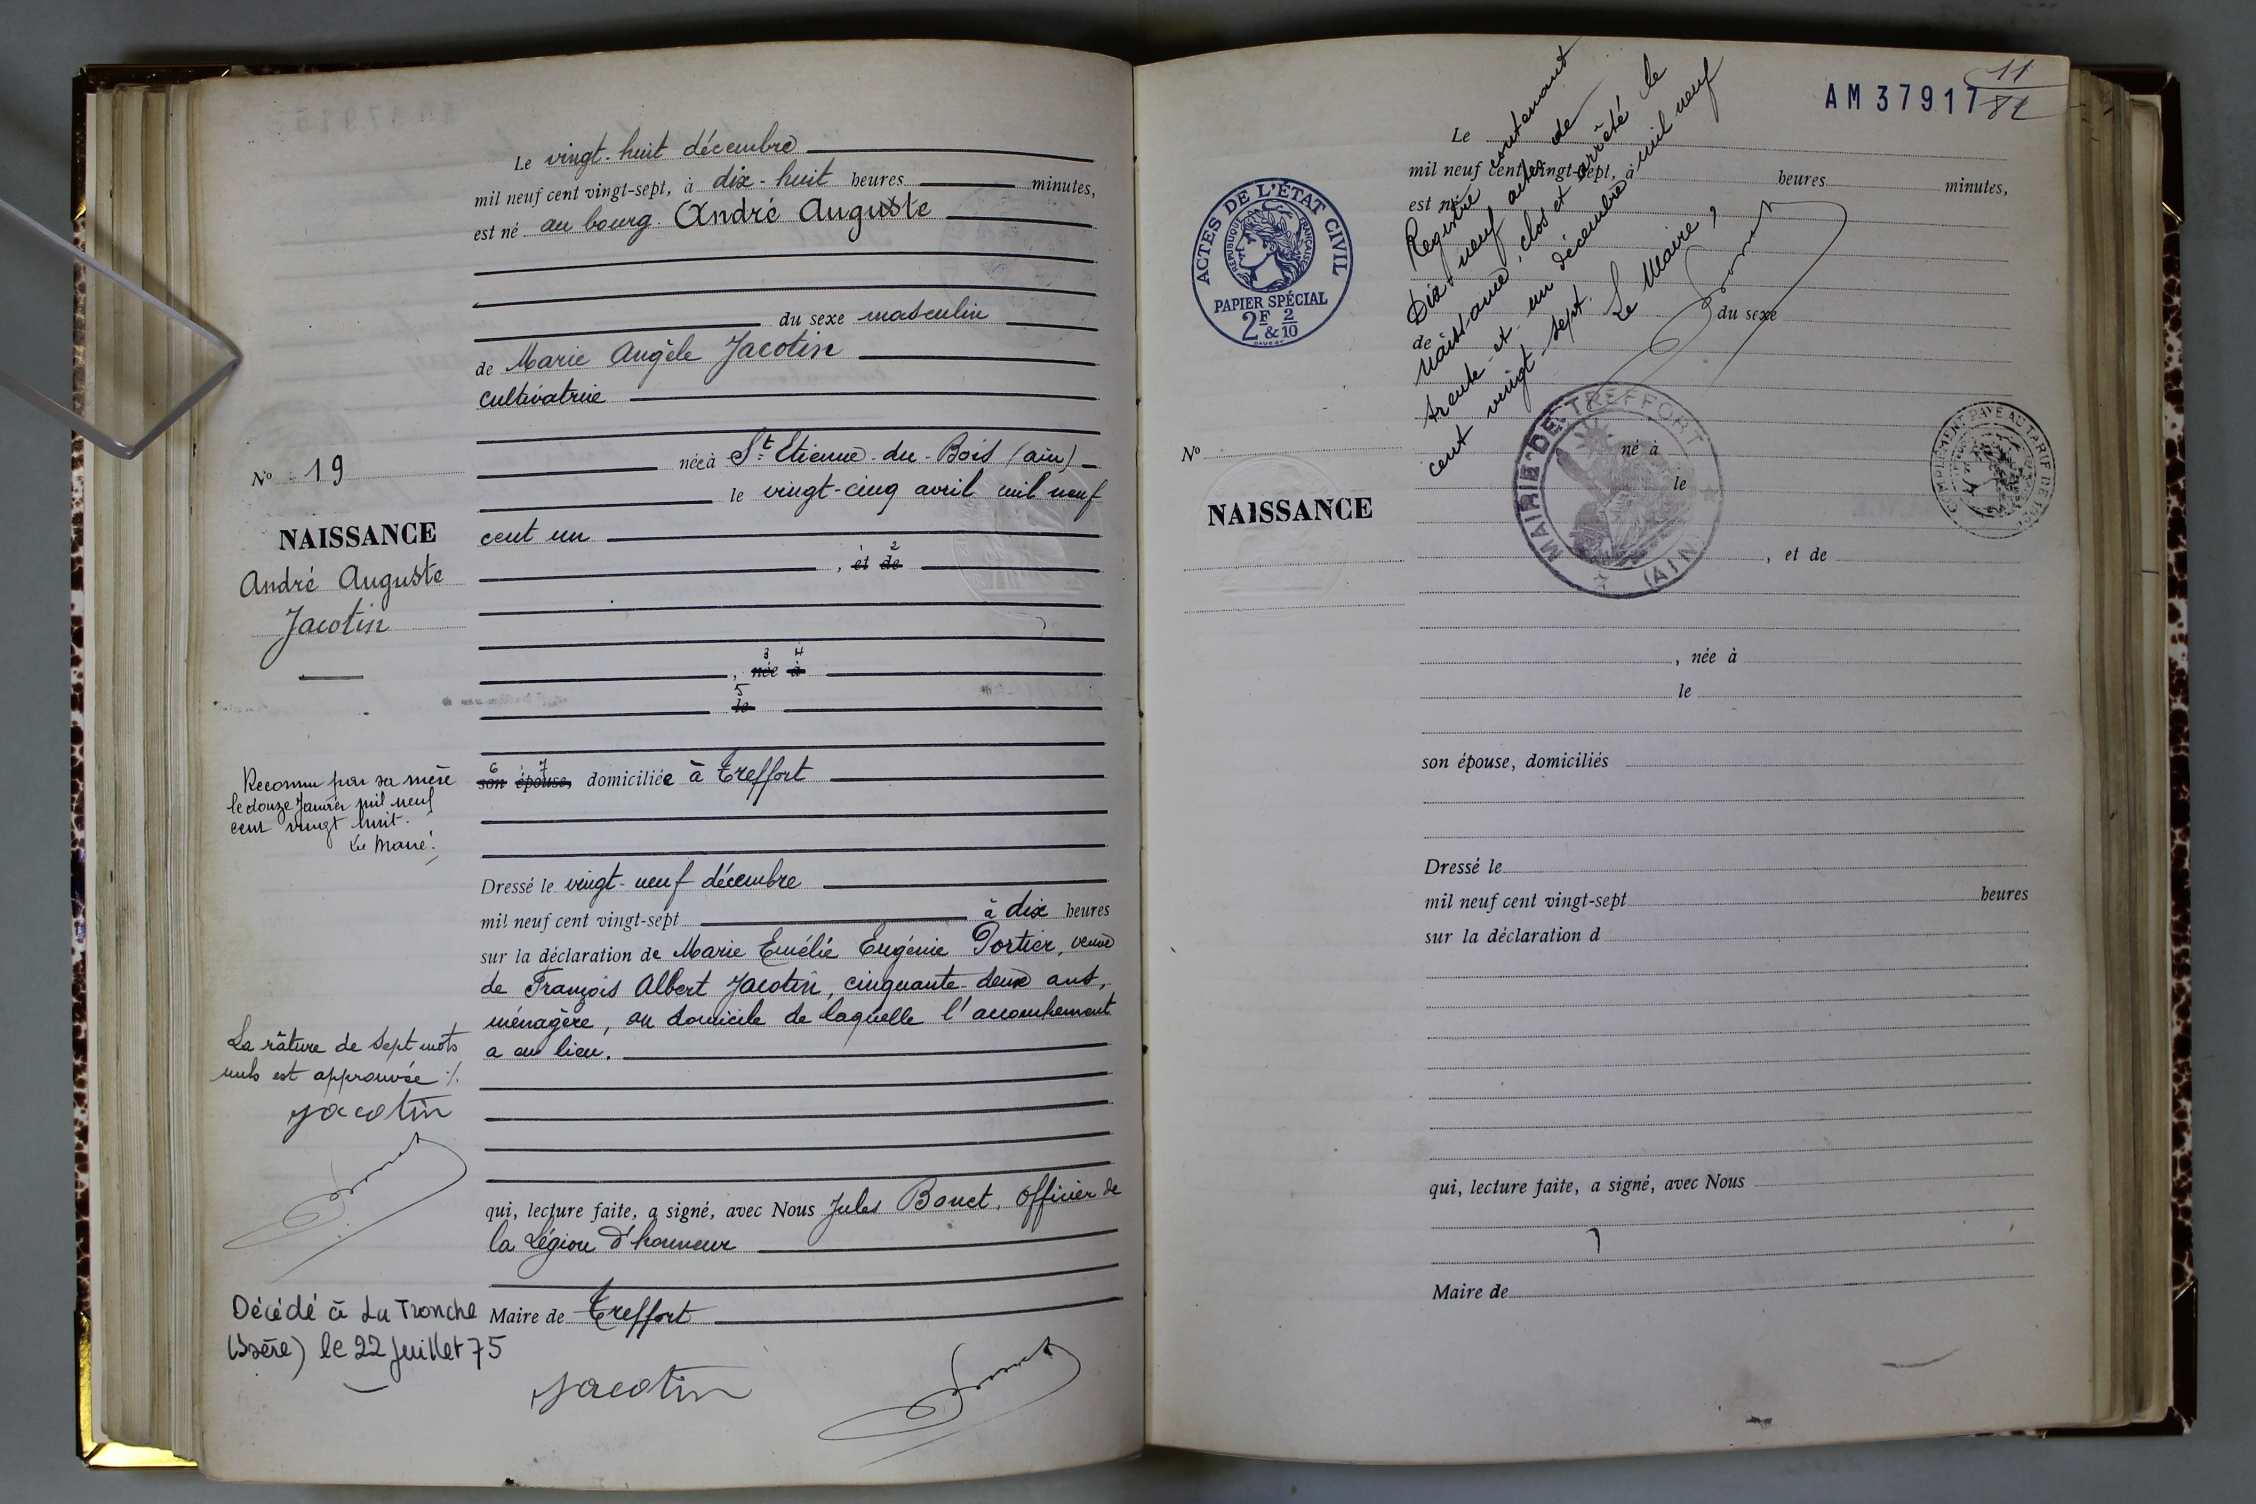 Le vingt-huit décembre
mil neuf cent vingt-sept, à dix-huit heures minutes,
est né au bourg André Auguste
du sexe masculin
de Marie Angèle Jacotin
cultivatrice
née à St. Etienne-du-Bois (ain)
le vingt-cinq avril mil neuf
cent un
1 2
, et de
3 4
, née à
5
le
6 7
son épouse, domiciliée à Treffort
Dressé le vingt-neuf décembre
mil neuf cent vingt-sept à dix heures
sur la déclaration de Marie Emélie Eugénie Portier, veuve
de François Albert Jacotin, cinquante-deux ans,
ménagère, au domicile de laquelle l'accouchement
a eu lieu.
qui, lecture faite, a signé, avec Nous Jules Bonet, Officier de
la Légion d'honneur
Maire de Treffort
Jacotin
Bonet
No 19
NAISSANCE
André Auguste
Jacotin
Reconnu par sa mère
le douze Janvier mil neuf
cent vingt huit.
Le Maire:
La râture de sept mots
nuls est approuvée ./.
Jacotin
Bonet
Décédé à La Tronche
(Isère) le 22 Juillet 75
AM 37917
11
82
ACTES DE L'ÉTAT CIVIL
RÉPUBLIQUE FRANÇAISE
PAPIER SPÉCIAL
2F 2
& 10
Le
mil neuf cent vingt-sept, à heures minutes,
est né
du sexe
de
Registre contenant
Dix-neuf actes de
naissance, clos et arrêté le
trente-et-un décembre mil neuf
cent vingt-sept. Le Maire,
Bonet
MAIRIE DE TREFFORT
(AIN)
COMPLÉMENT PAYÉ AU TARIF DE
No
NAISSANCE
né à
le
, et de
, née à
le
son épouse, domiciliés
Dressé le
mil neuf cent vingt-sept heures
sur la déclaration d
qui, lecture faite, a signé, avec Nous
Maire de